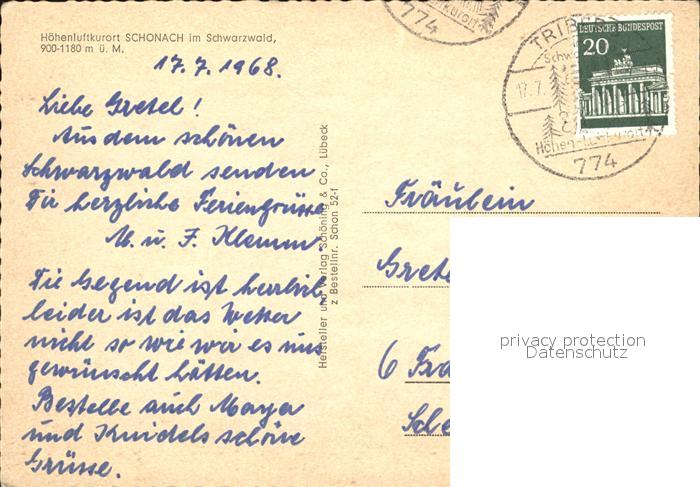 Höhenluftkurort SCHONACH im Schwarzwald,
900-1180 m ü. M.
17.7.1968.
Liebe Gretel!
Aus dem schönen
Schwarzwald senden
Dir herzliche Feriengrüsse
M. u. F. Klemm.
Die Gegend ist herrlich,
leider ist das Wetter
nicht so wie wir es uns
gewünscht hätten.
Bestelle auch Maya
und Knidels schöne
Grüsse.
Hersteller und Verlag Schöning & Co., Lübeck
z Bestellnr. Schon 52-f
774
TRIBERG
Schw
17.7.
Höhen-Luftkurort
774
DEUTSCHE BUNDESPOST
20
Fräulein
Grete
6 Fra
Sche
privacy protection
Datenschutz